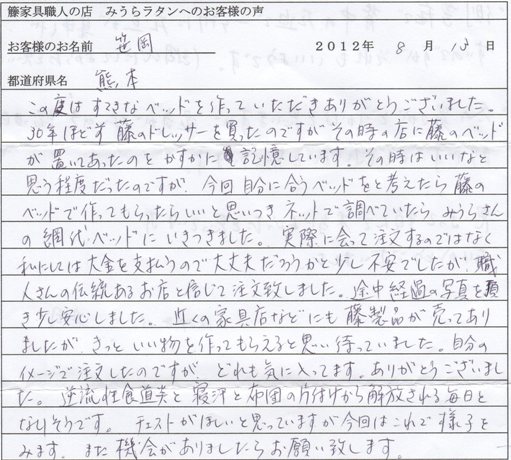 籐家具職人の店　みうらラタンへのお客様の声
お客様のお名前　笹岡　2012年 8 月 13 日
都道府県名　熊本
この度はすてきなベッドを作っていただきありがとうございました。
30年ほど前 藤のドレッサーを買ったのですがその時の店に藤のベッド
が置いてあったのをかすかに記憶しています。その時はいいなと
思う程度だったのですが、今回自分に合うベッドをと考えたら藤の
ベッドで作ってもらったらいいと思いつきネットで調べていたら みうらさん
の網代ベッドにいきつきました。実際に会って注文するのではなく
私にしては大金を支払うので大丈夫だろうかと少し不安でしたが 職
人さんの伝統あるお店と信じて注文致しました。途中経過の写真を頂
き少し安心しました。近くの家具店などにも藤製品が売ってあり
ましたが、きっといい物を作ってもらえると思い待っていました。自分の
イメージで注文したのですが、どれも気に入ってます。ありがとうございまし
た。逆流性食道炎と寝汗と布団の片付けから解放される毎日と
なりそうです。チェストがほしいと思っていますが今回はこれで様子を
みます。また機会がありましたらお願い致します。